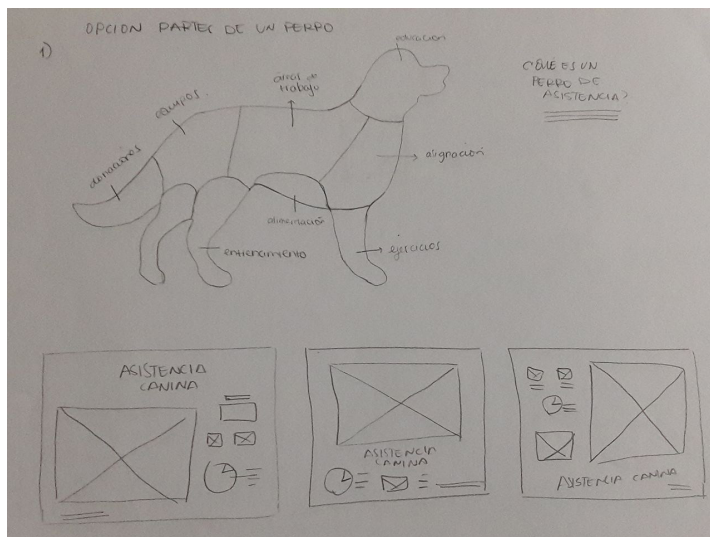 OPCION PARTES DE UN PERRO
1)
educación
¿QUÉ ES UN
PERRO DE
ASISTENCIA?
áreas de
trabajo
equipos
donaciones
asignación
alimentación
entrenamiento
ejercicios
ASISTENCIA
CANINA
ASISTENCIA
CANINA
ASISTENCIA CANINA